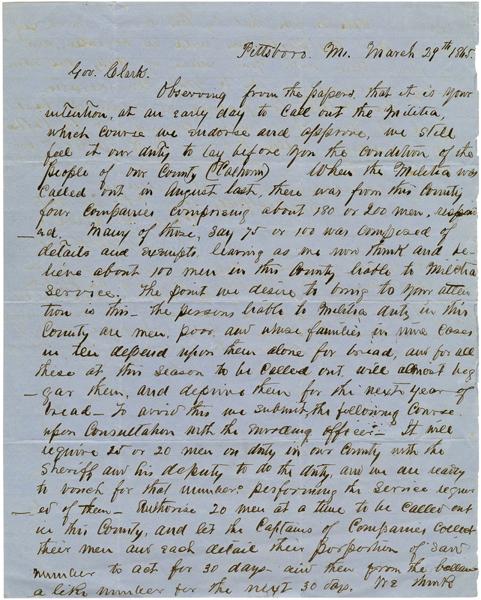 Pittsboro. Mi. March 29th 1865.
Gov. Clark.
Observing from the papers, that it is your
intention, at an early day to Call out the Militia,
which Course we endorse and approve, we still
feel it our duty to lay before you the condition of the
People of our County (Calhoun) When the Militia was
Called out in August last, there was from this County
four Companies Composing about 180 or 200 men,
ed. Many of those, say 75 or 100 was Composed of
details and exempts, leaving as we now think and be-
lieve about 100 men in this County liable to Militia
Service. The point we desire to bring to your atten
tion is this - the persons liable to Militia duty in this
County are men, poor, and whose families in nine cases
in ten depend upon them alone for bread, and for all
these at this season to be Called out, will almost beg
-gar them, and deprive them for the next year of
bread - To avoid this we submit the following Course.
upon Consultation with the enrolling officer - It will
require 25 or 20 men on duty in our County with the
Sheriff and his deputy to do the duty, and we are ready
to vouch for that number performing the Service requir
-ed of them - Authorise 20 men at a time to be Called out
in this County, and let the Captains of Companies Collect
their men and each detail their porportion of said
number to act for 30 days - and then from the ballance
a like number for the next 30 days. We think